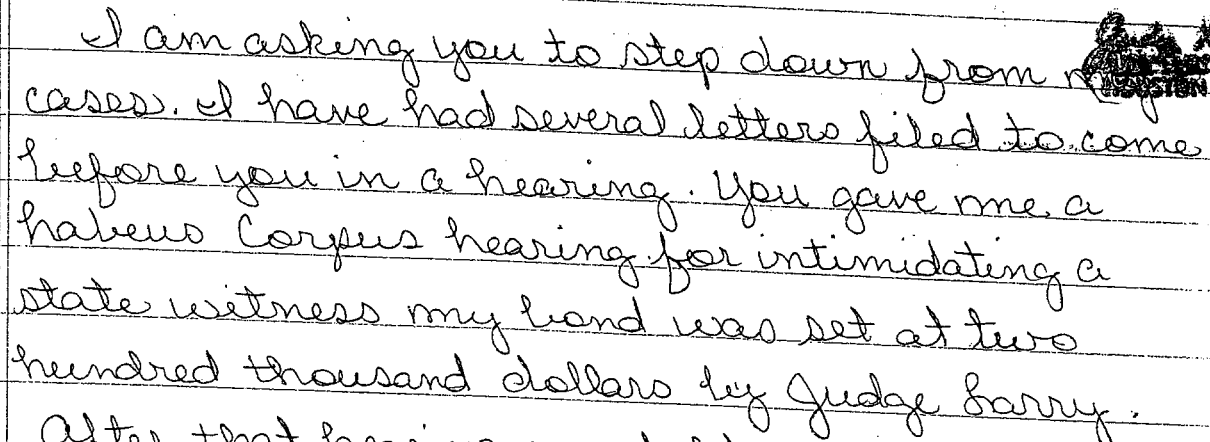 I am asking you to step down from my
HOUSTON
cases. I have had several letters filed to come
before you in a hearing. You gave me a
habeus Corpus hearing for intimidating a
state witness my bond was set at two
hundred thousand dollars by Judge Larry.
After that hearing